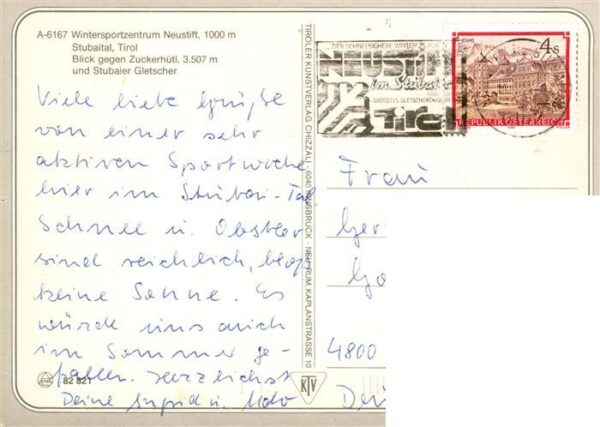 A-6167 Wintersportzentrum Neustift, 1000 m
Stubaital, Tirol
Blick gegen Zuckerhütl, 3.507 m
und Stubaier Gletscher
Viele liebe Grüße
von einer sehr
aktiven Sportwoche
hier im Stubai-Tal
Schnee u. Obstler
sind reichlich, bloß
keine Sonne. Es
würde uns auch
im Sommer ge-
fallen. Herzlichst
Deine Ingrid u. Udo
82 821
TIROLER KUNSTVERLAG CHIZZALI · 6040 INNSBRUCK · NEURUM, KAPLANSTRASSE 10
KTV
DER SCHNEESICHERE WINTER
NEUSTIFT
im Stubai
GRÖSSTES GLETSCHERSKIGEBIET
Tirol
4 S
REPUBLIK ÖSTERREICH
Frau
Ger
4800